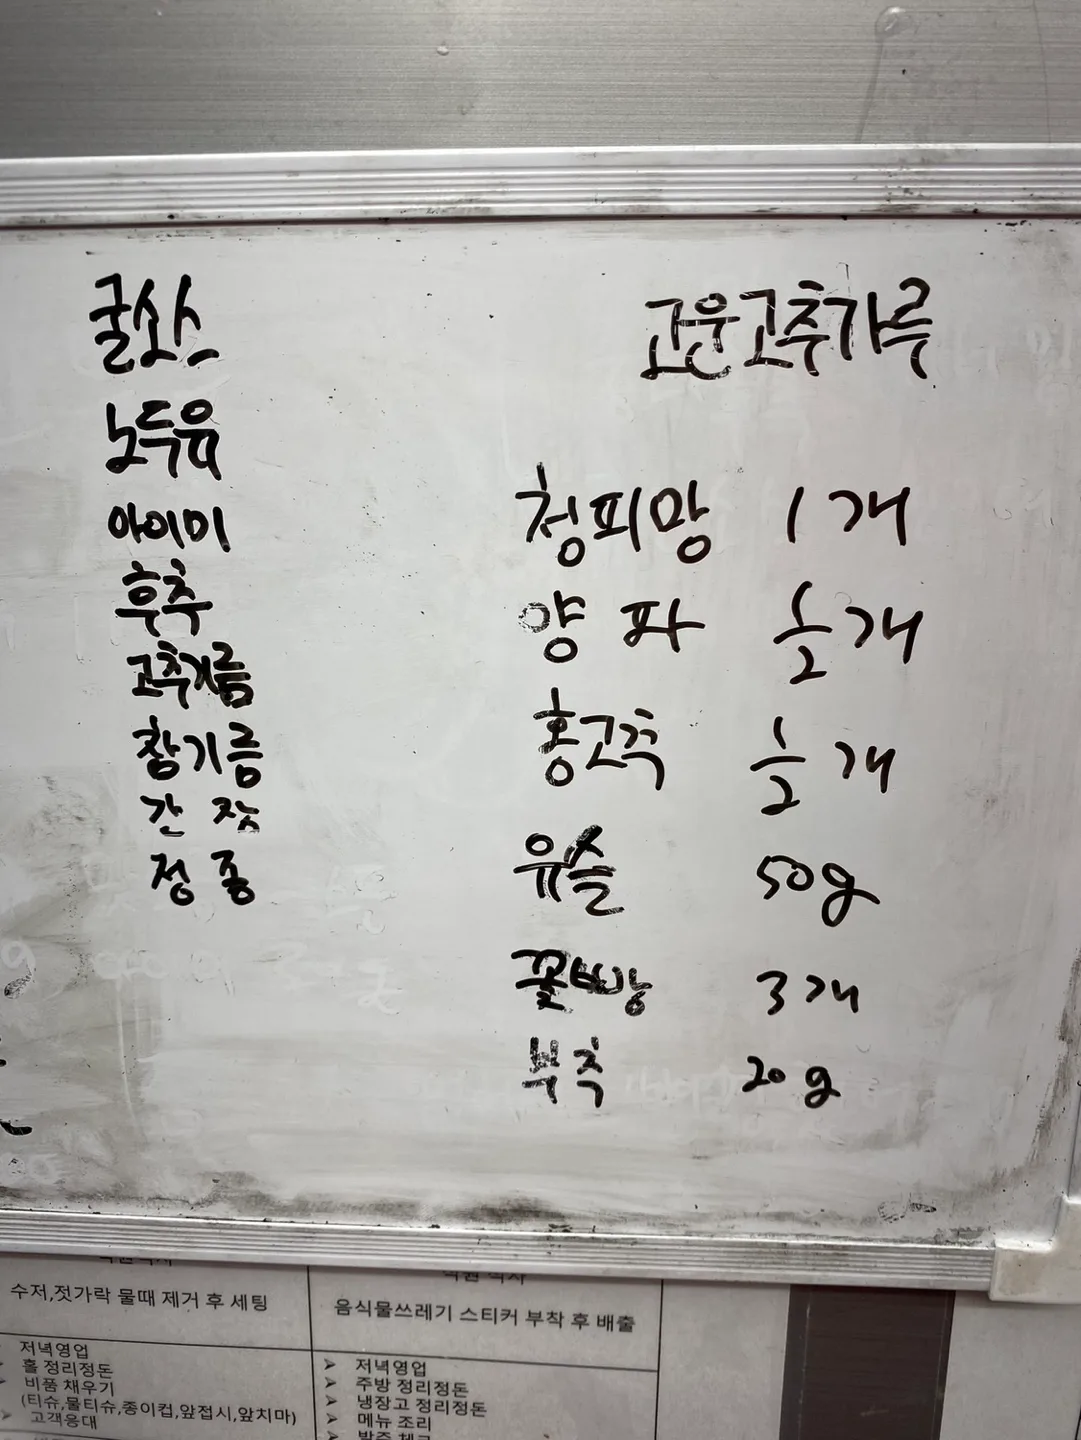 굴소스
노두유
아이미
후추
고추기름
참기름
간장
정종
고운고추가루
청피망 1개
양파 1/2개
홍고추 1/2개
유슬 50g
꽃빵 3개
부추 20g
수저,젓가락 물때 제거 후 세팅
저녁영업
홀 정리정돈
비품 채우기
(티슈,물티슈,종이컵,앞접시,앞치마)
고객응대
음식물쓰레기 스티커 부착 후 배출
저녁영업
주방 정리정돈
냉장고 정리정돈
메뉴 조리